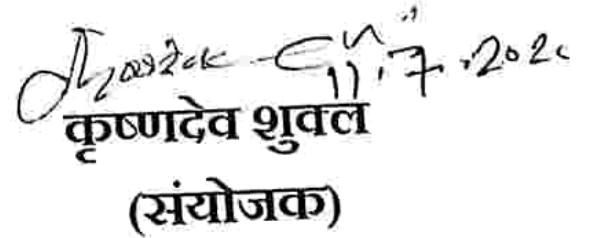 11.7.202
कृष्णदेव शुक्ल
(संयोजक)